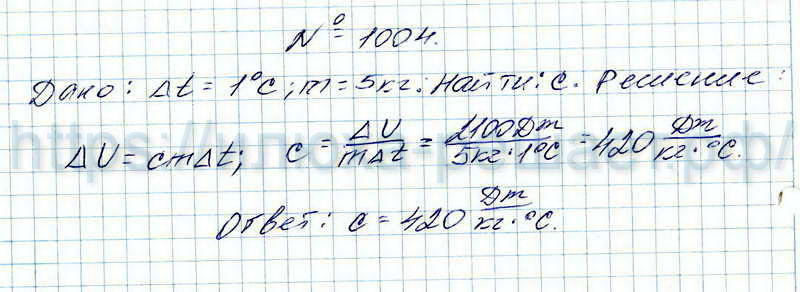 № 1004.
Дано: Δt = 1°C; m = 5кг. Найти: c. Решение:
ΔU = cmΔt; c = ΔU/mΔt = 2100Дж/5кг·1°C = 420 Дж/кг·°C.
Ответ: c = 420 Дж/кг·°C.